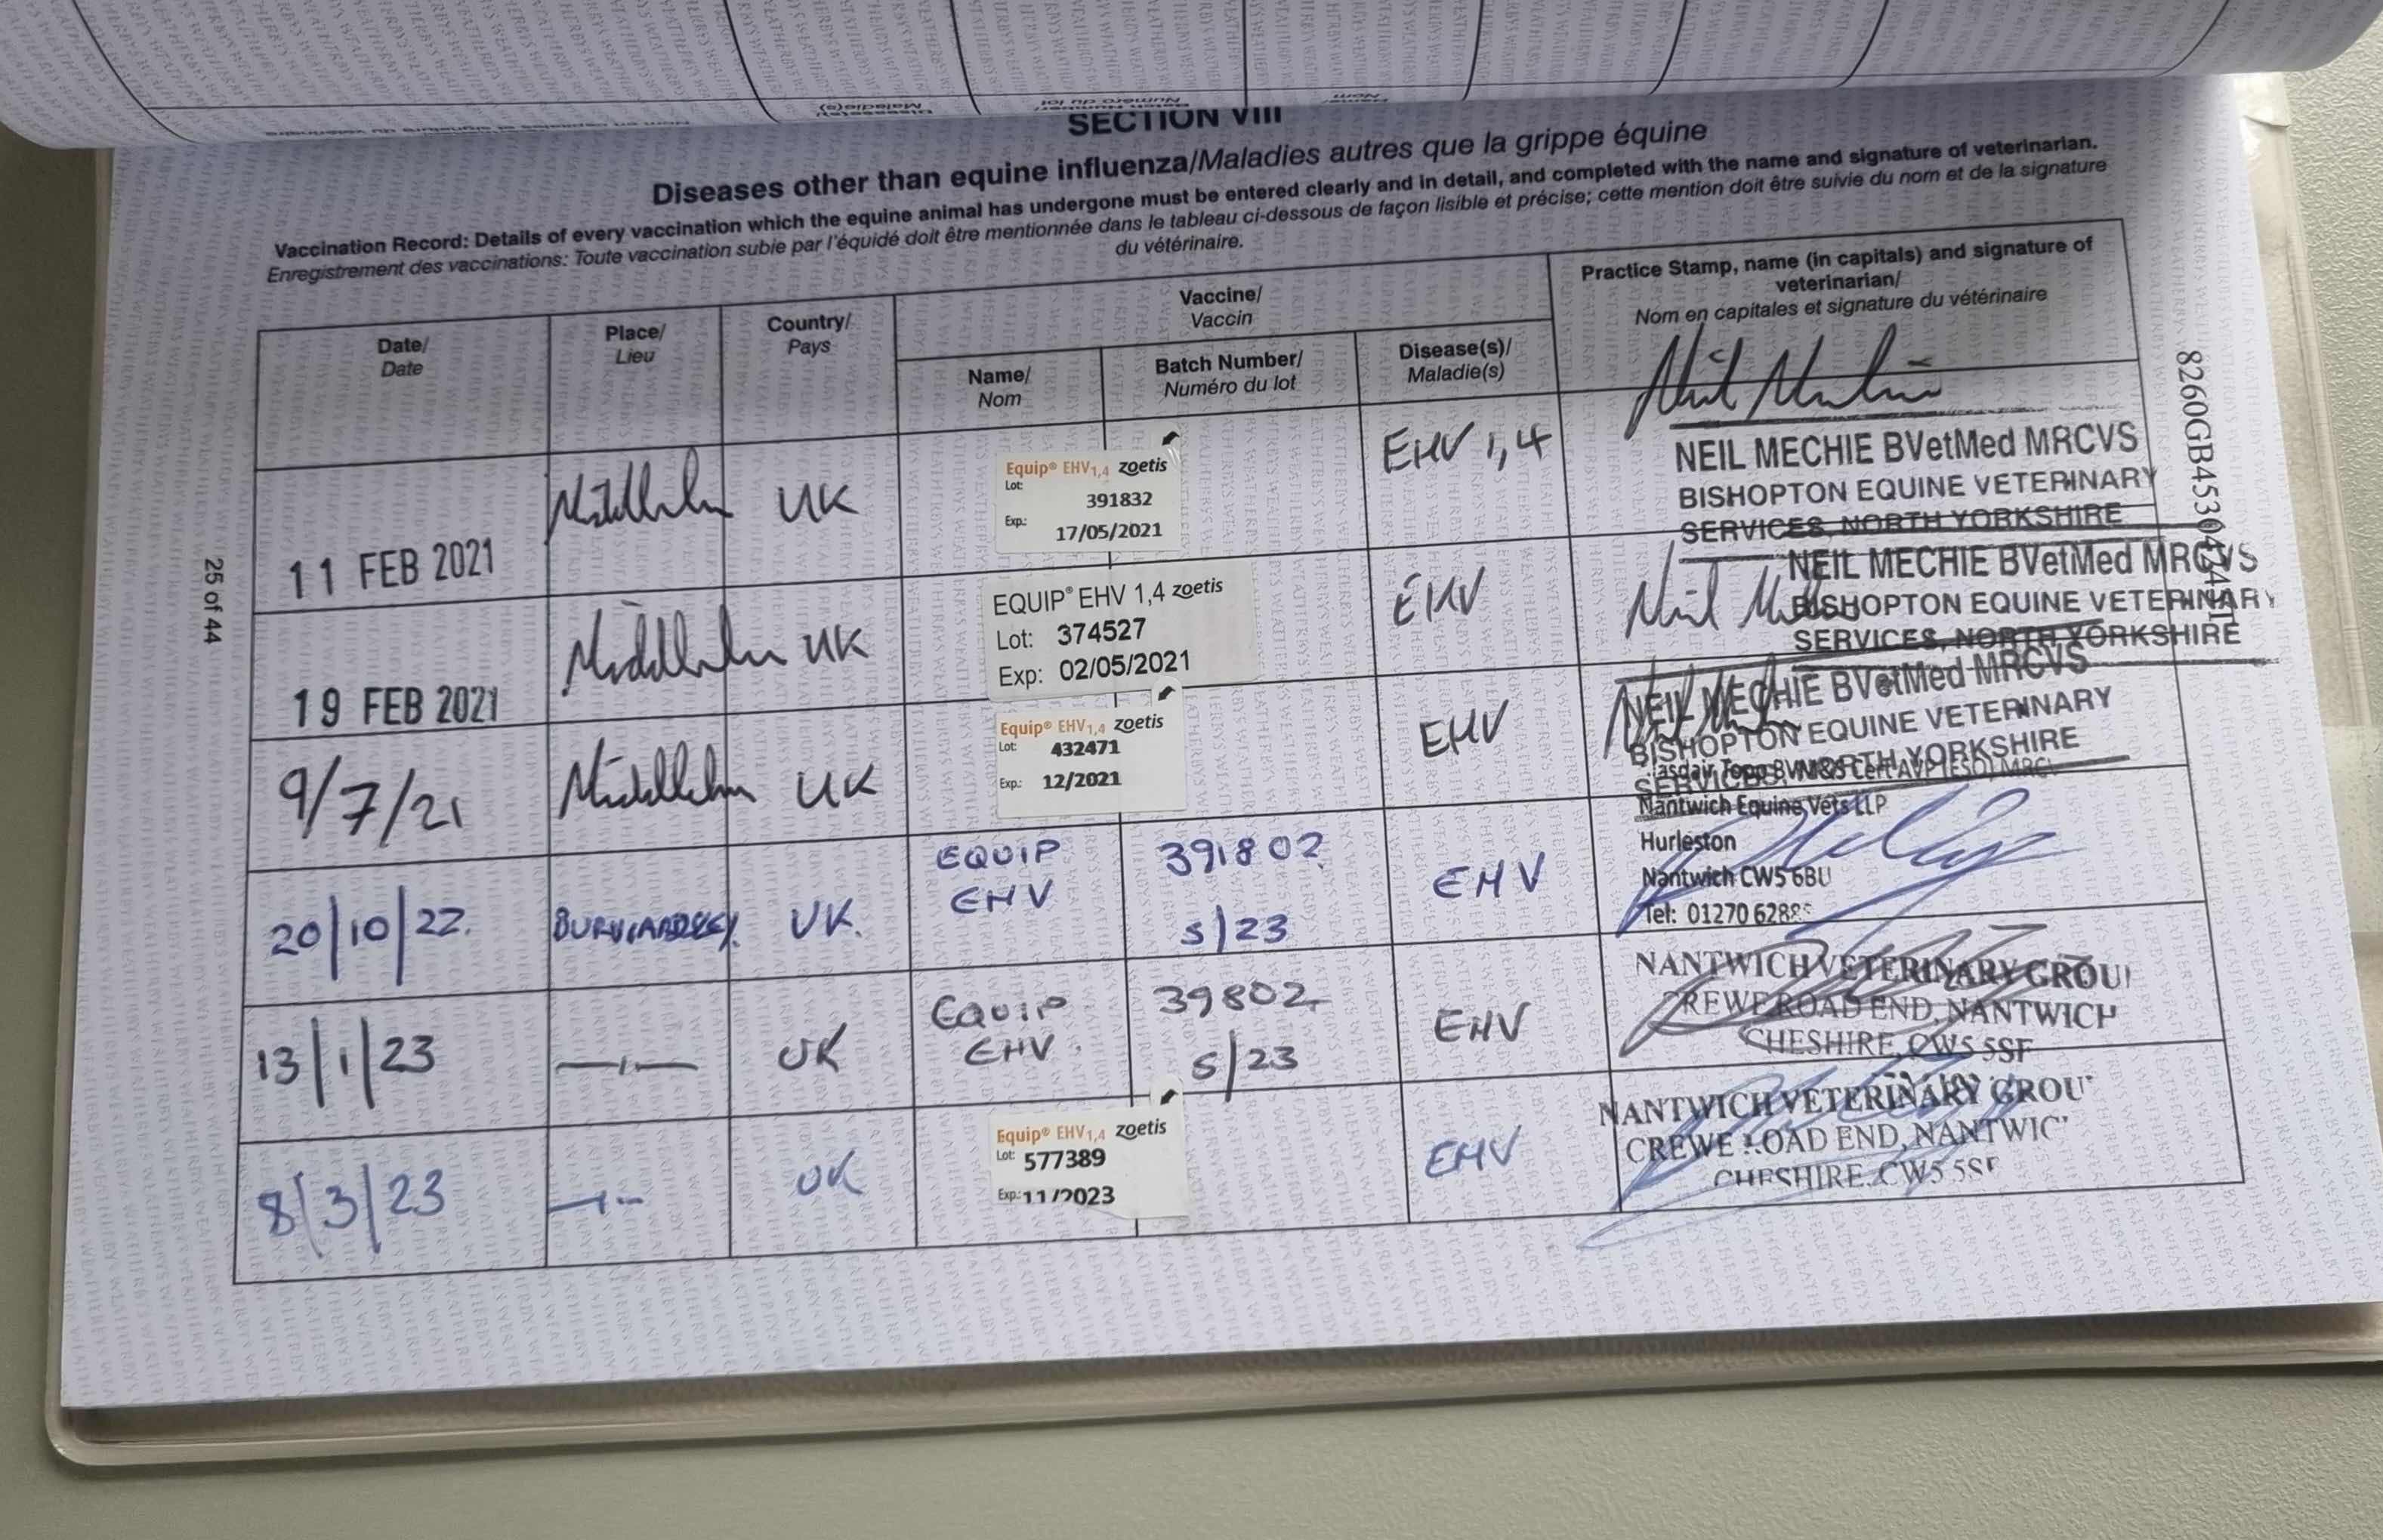 SECTION VIII
Diseases other than equine influenza/Maladies autres que la grippe équine
Vaccination Record: Details of every vaccination which the equine animal has undergone must be entered clearly and in detail, and completed with the name and signature of veterinarian.
Enregistrement des vaccinations: Toute vaccination subie par l'équidé doit être mentionnée dans le tableau ci-dessous de façon lisible et précise; cette mention doit être suivie du nom et de la signature
du vétérinaire.
Date/
Date
Place/
Lieu
Country/
Pays
Vaccine/
Vaccin
Name/
Nom
Batch Number/
Numéro du lot
Disease(s)/
Maladie(s)
Practice Stamp, name (in capitals) and signature of
veterinarian/
Nom en capitales et signature du vétérinaire
11 FEB 2021
Middleham
UK
Equip® EHV1,4 zoetis
Lot:
391832
Exp.:
17/05/2021
EHV 1,4
NEIL MECHIE BVetMed MRCVS
BISHOPTON EQUINE VETERINARY
SERVICES, NORTH YORKSHIRE
19 FEB 2021
Middleham
UK
EQUIP® EHV 1,4 zoetis
Lot: 374527
Exp: 02/05/2021
EHV
NEIL MECHIE BVetMed MRCVS
BISHOPTON EQUINE VETERINARY
SERVICES, NORTH YORKSHIRE
9/7/21
Middleham
UK
Equip® EHV1,4 zoetis
Lot: 432471
Exp.: 12/2021
EHV
NEIL MECHIE BVetMed MRCVS
BISHOPTON EQUINE VETERINARY
SERVICES, NORTH YORKSHIRE
20/10/22.
UK.
EQUIP
EHV
391802
5/23
EHV
Nantwich Equine Vets LLP
Hurleston
Nantwich CW5 6BU
Tel: 01270 6288
13/1/23
UK
EQUIP
EHV.
39802
5/23
EHV
NANTWICH VETERINARY GROU
CREWE ROAD END, NANTWICH
CHESHIRE, CW5 5SF
8/3/23
UK
Equip® EHV1,4 zoetis
Lot: 577389
Exp.: 11/2023
EHV
NANTWICH VETERINARY GROU
CREWE ROAD END, NANTWIC
CHESHIRE, CW5 5SF
25 of 44